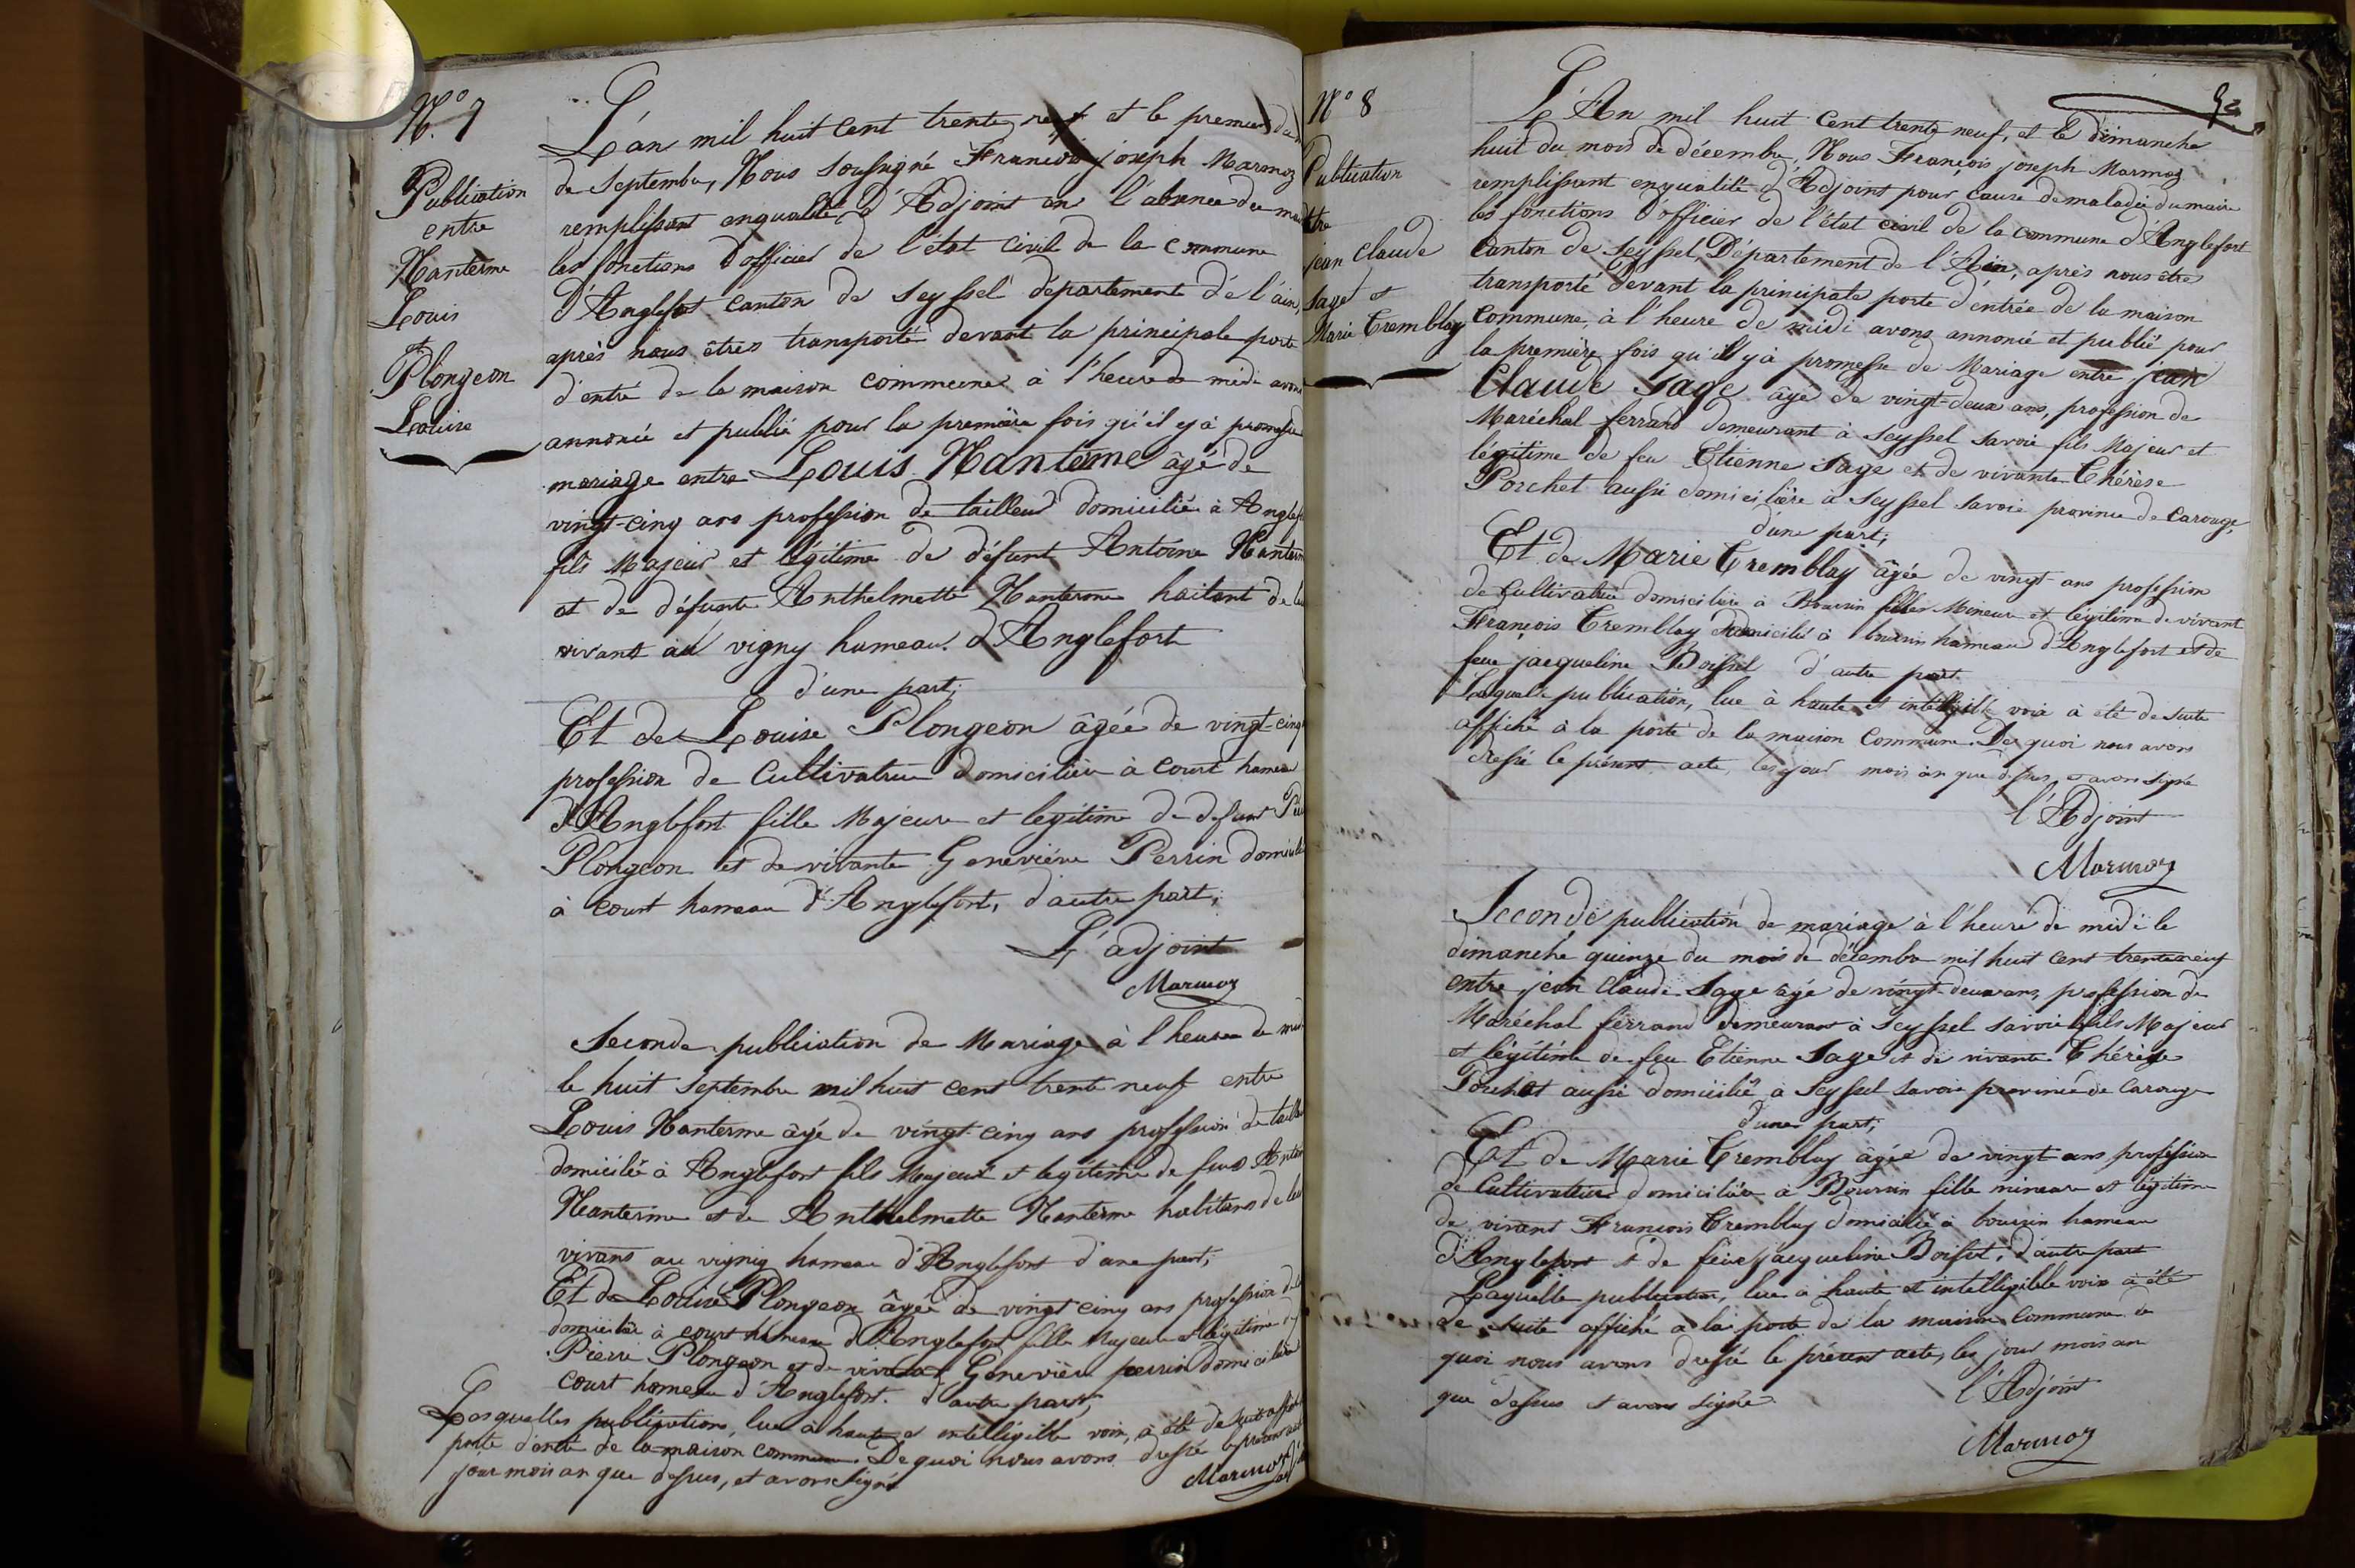 N.° 7
Publication
entre
Nanterme
Louis
et
Plongeon
Louise
L'an mil huit cent trente neuf et le premier
de septembre, Nous soussigné François joseph Marmoz
remplissant enqualité d'Adjoint en l'absence du
les fonctions d'officier de l'état civil de la commune
d'Anglefort canton de Seyssel département de l'ain,
après nous êtres transporté devant la principale porte
d'entré de la maison commune à l'heure de midi avons
annoncé et publié pour la première fois qu'il y à promesse
mariage entre Louis Nanterme âgé de
vingt-cinq ans profession de tailleur domicilié à
fils Majeur et légitime de défunt Antoine
et de défunte Anthelmette Nanterme haitant de
vivant au vigny hameau d'Anglefort
d'une part;
Et de Louise Plongeon âgée de vingt-cinq
profession de Cultivatrice domicilière à court hameau
d'Anglefort fille Majeure et legitime de defunt
Plongeon et de vivante Geneviéve Perrin
à court hameau d'Anglefort, d'autre part;
L'adjoint
Marmoz
Seconde publication de Mariage à l'heure de
le huit Septembre mil huit cent trente neuf entre
Louis Nanterme âgé de vingt-cinq ans profession de
domicilié à Anglefort fils Majeur et legitime de feux
Nanterme et de Anthelmette Nanterme habitans de
vivans au vignig hameau d'Anglefort d'une part;
Et de Louise Plongeon âgée de vingt cinq ans profession
domicilière à court hameau d'Anglefort fille Majeure et légitime
Pierre Plongeon et de vivante Geneviève perrin domicilière
court hameau d'Anglefort. d'autre part;
Lesquelles publications, lue à haute et intelligible voix, à été de suite
porte d'entré de la maison commune. De quoi nous avons dressé
jour mois an que dessus, et avons signé
Marmoz
N° 8
Publication
jean Claude
Sage et
Marie Tremblay
L'An mil huit Cent trente neuf, et le dimanche
huit du mois de décembre, Nous François joseph Marmoz
remplissant enqualité d'Adjoint pour cause de maladie du maire
les fonctions d'officier de l'état civil de la commune d'Anglefort
Canton de Seyssel, Département de l'Ain, après nous être
transporté devant la principale porte d'entrée de la maison
Commune, à l'heure de midi avons annoncé et publié pour
la première fois qu'il y à promesse de Mariage entre jean
Claude Sage âgé de vingt-deux ans, profession de
Maréchal ferrand demeurant à Seyssel Savoie fils Majeur et
légitime de feu Étienne Sage et de vivante Thérèse
Porchet aussi domicilière à Seyssel Savoie province de Carouge,
d'une part;
Et de Marie Tremblay âgée de vingt ans profession
de Cultivatrice domicilière à Boursin fille Mineure et légitime de vivant
François Tremblay domicilié à boursin hameau d'Anglefort et de
feue jacqueline Boissel d'autre part.
Laquelle publication, lue à haute et intelligible voix à été de suite
affiché à la porte de la maison Commune. De quoi nous avons
dressé le présent acte, les jour mois an que dessus, et avons signé
l'Adjoint
Marmoz
Seconde publication de mariage à l'heure de midi le
dimanche quinze du mois de décembre mil huit cent trente neuf
entre jean Claude Sage âgé de vingt-deux ans, profession de
Maréchal ferrand demeurant à Seyssel Savoie fils Majeur
et légitime de feu Etienne Sage et de vivante Thérèse
Porchet aussi domicilié à Seyssel Savoie province de Carouge
d'une part;
Et de Marie Tremblay âgée de vingt ans profession
de Cultivatrice domicilière à Boursin fille mineure et légitime
de vivant François Tremblay domicilié à boursin hameau
d'Anglefort et de feue jacqueline Boissel, d'autre part
Laquelle publication, lue à haute et intelligible voix à été
de suite affiché à la porte de la maison Commune de
quoi nous avons dressé le présent acte, les jour mois an
que dessus et avons signé.
l'Adjoint
Marmoz